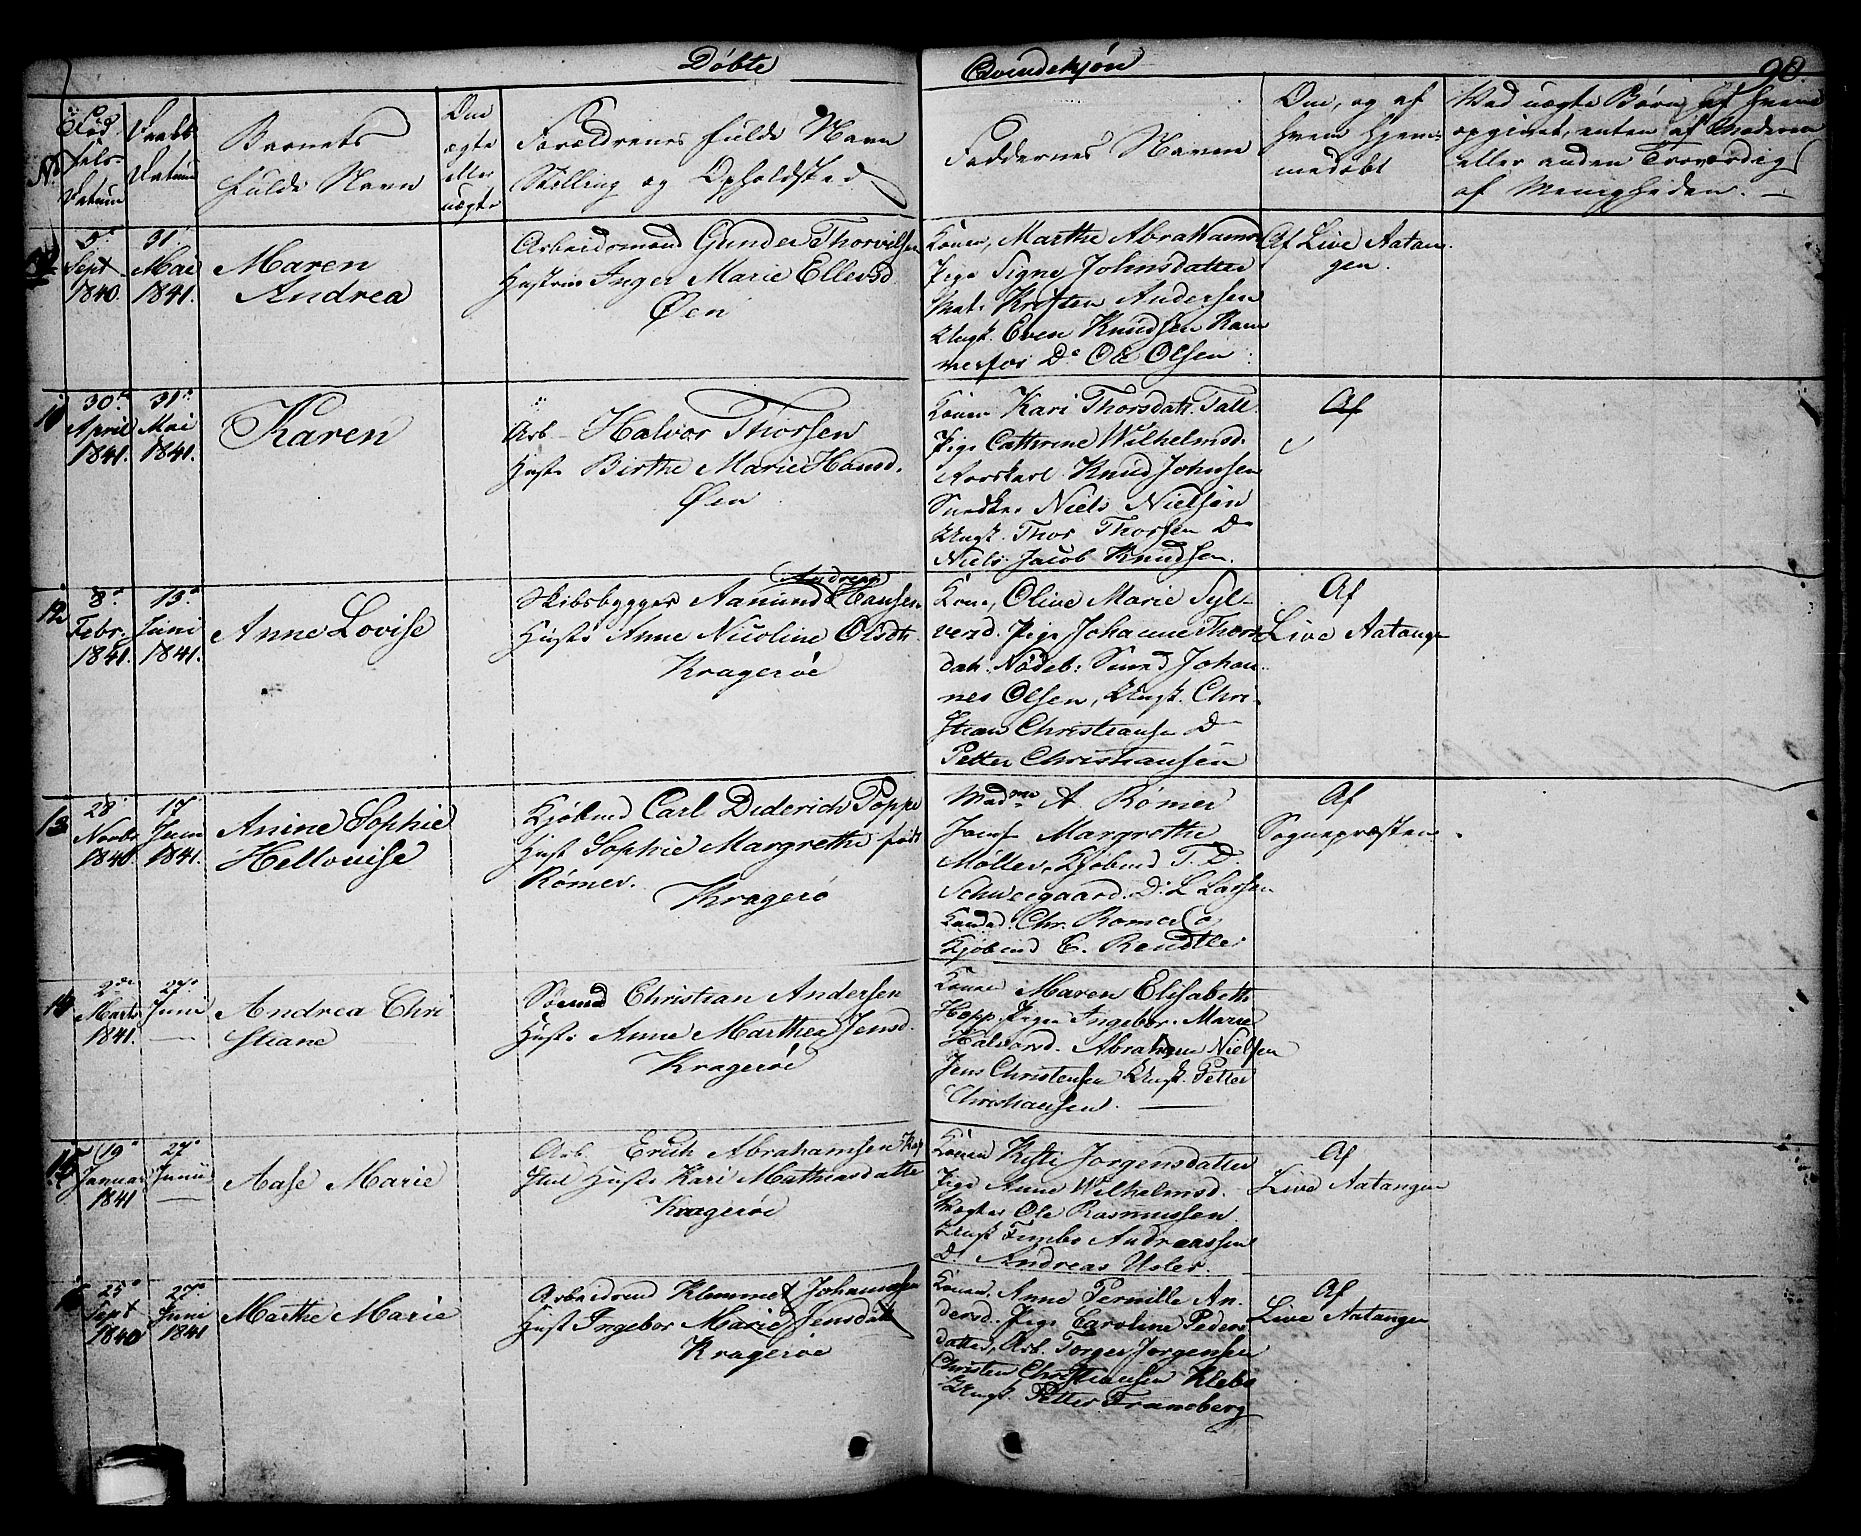 Døbte Qvindekjøn 90.
No Fødsels Datum
Daabs Datum
Barnets fulde Navn
Om ægte eller uægte
Forældrenes fulde Navn Stilling og Opholdsted
Faddernes Navne
Om, og af hvem hjemmedøbt
Hvad uægte Børn, af hvem opgivet, enten af Moderen eller anden Troværdig af Menigheden.
5te Sept 1840. 31 Mai 1841.
Maren Andrea
Arbeidsmand Gunder Thorvilsen
Hustrue Inger Marie Ellevsd
Øen
Konen, Marthe Abrahams
Pige Signe Johnsdatter
Mat. Kristen Andersen
Ungk. Even Knudsen Kam
merfos Do Ole Olsen
Af Live Aatan
gen.
11 30te April 1841. 31te Mai 1841.
Karen
Arb. Halvor Thorsen
Hust: Birthe Marie Hansd.
Øen
Konen Kari Thorsdatr. Tall.
Pige Cathrine Wilhelmsd.
Knud Johnsen
Snedker Niels Nielsen
Ungk. Thor Thorsen Do
Niels Jacob Knudsen.
Af
12 8de Febr. 1841. 13de Juni 1841.
Anne Lovise
Andreas
Skibsbygger Aanund Clausen
Hust: Anne Nicoline Olsdtr.
Kragerøe
Kone, Olive Marie Syl-
versd. Pige Johanne Thors
datr. Nødeb: Smed Johan-
nes Olsen, Ungk. Chri-
stian Christiansen Do
Petter Christiansen
Af
Live Aatange
13 28 Novbr 1840. 17 Juni 1841.
Anine Sophie
Hellovise
Kjøbmd Carl Diderich Poppe
Hust Sophie Margrethe født
Rømer.
Kragerø
Madme A. Rømer
Jomf Margrethe
Møller, Kjøbmd T. D.
Schweegaard. Do L Larsen
Cand. Chr. Romer &
Kjøbmd C. Rendtler
Af
Sognepræsten.
14 2den Marts 1841. 27de Juni
Andrea Chri
stiane
Sømd Christian Andersen
Hust: Anne Marthea Jensd.
Kragerøe
Konen Maren Elisabeth
Hopp. Pigen Ingebor. Marie
Halvorsd. Abraham Nielsen
Jens Christensen Ungk. Petter
Christiansen.
15 19de Januar 1841 27de Junii
Aase Marie
Arb. Erich Abrahamsen
Hust: Kari Mathiasdatter
Kragerøe
Konen Kisti Jorgensdatter
Pige Anne Wilhelmsd.
Ole Rasmussen
Ungk Andreassen
Do Andreas Usler.
Af
Live Aatangen
16 25de Sept 1840 27de Juni 1841
Marthe Marie
Arbeidsmd Klemmet Johannesen
Hust Ingebor Marie Jensdatr
Kragerøe
Konen, Anne Pernille An-
dersd. Pige Caroline Peders
datter, Arb. Torger Jorgensen
Christen Christiansen Klebo
Ungk. Petter Franeberg
Af
Live Aatangen